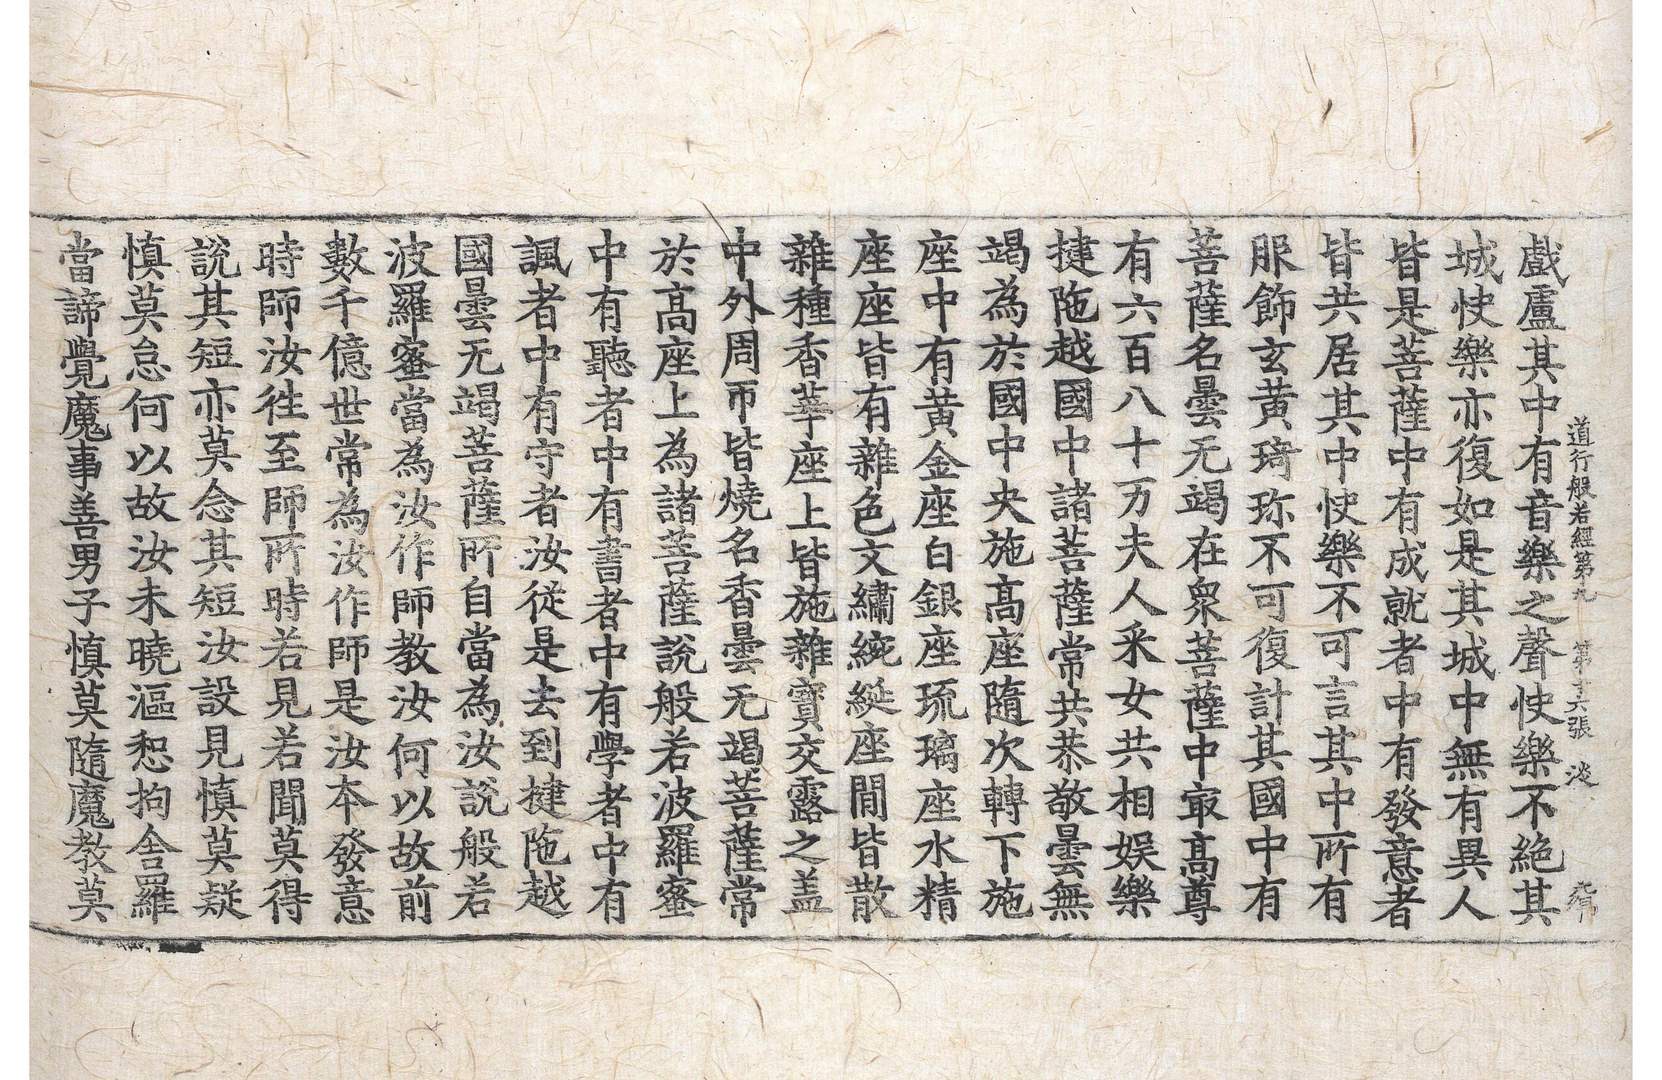 道行般若經第九 第十六張 淡
戲廬其中有音樂之聲快樂不絕其
城快樂亦復如是其城中無有異人
皆是菩薩中有成就者中有發意者
皆共居其中快樂不可言其中所有
服飾玄黃琦珎不可復計其國中有
菩薩名曇无竭在衆菩薩中㝡髙尊
有六百八十万夫人采女共相娛樂
揵陁越國中諸菩薩常共恭敬曇無
竭為於國中央施髙座隨次轉下施
座中有黃金座白銀座琉璃座水精
座座皆有雜色文繡綩綖座閒皆散
雜種香華座上皆施雜寶交露之盖
中外周帀皆燒名香曇无竭菩薩常
於髙座上為諸菩薩說般若波羅蜜
中有聽者中有書者中有學者中有
諷者中有守者汝從是去到揵陁越
國曇无竭菩薩所自當為汝說般若
波羅蜜當為汝作師教汝何以故前
數千億世常為汝作師是汝夲發意
時師汝往至師所時若見若聞莫得
說其短亦莫念其短汝設見慎莫疑
慎莫怠何以故汝未曉漚惒拘舍羅
當諦覺魔事善男子慎莫隨魔教莫